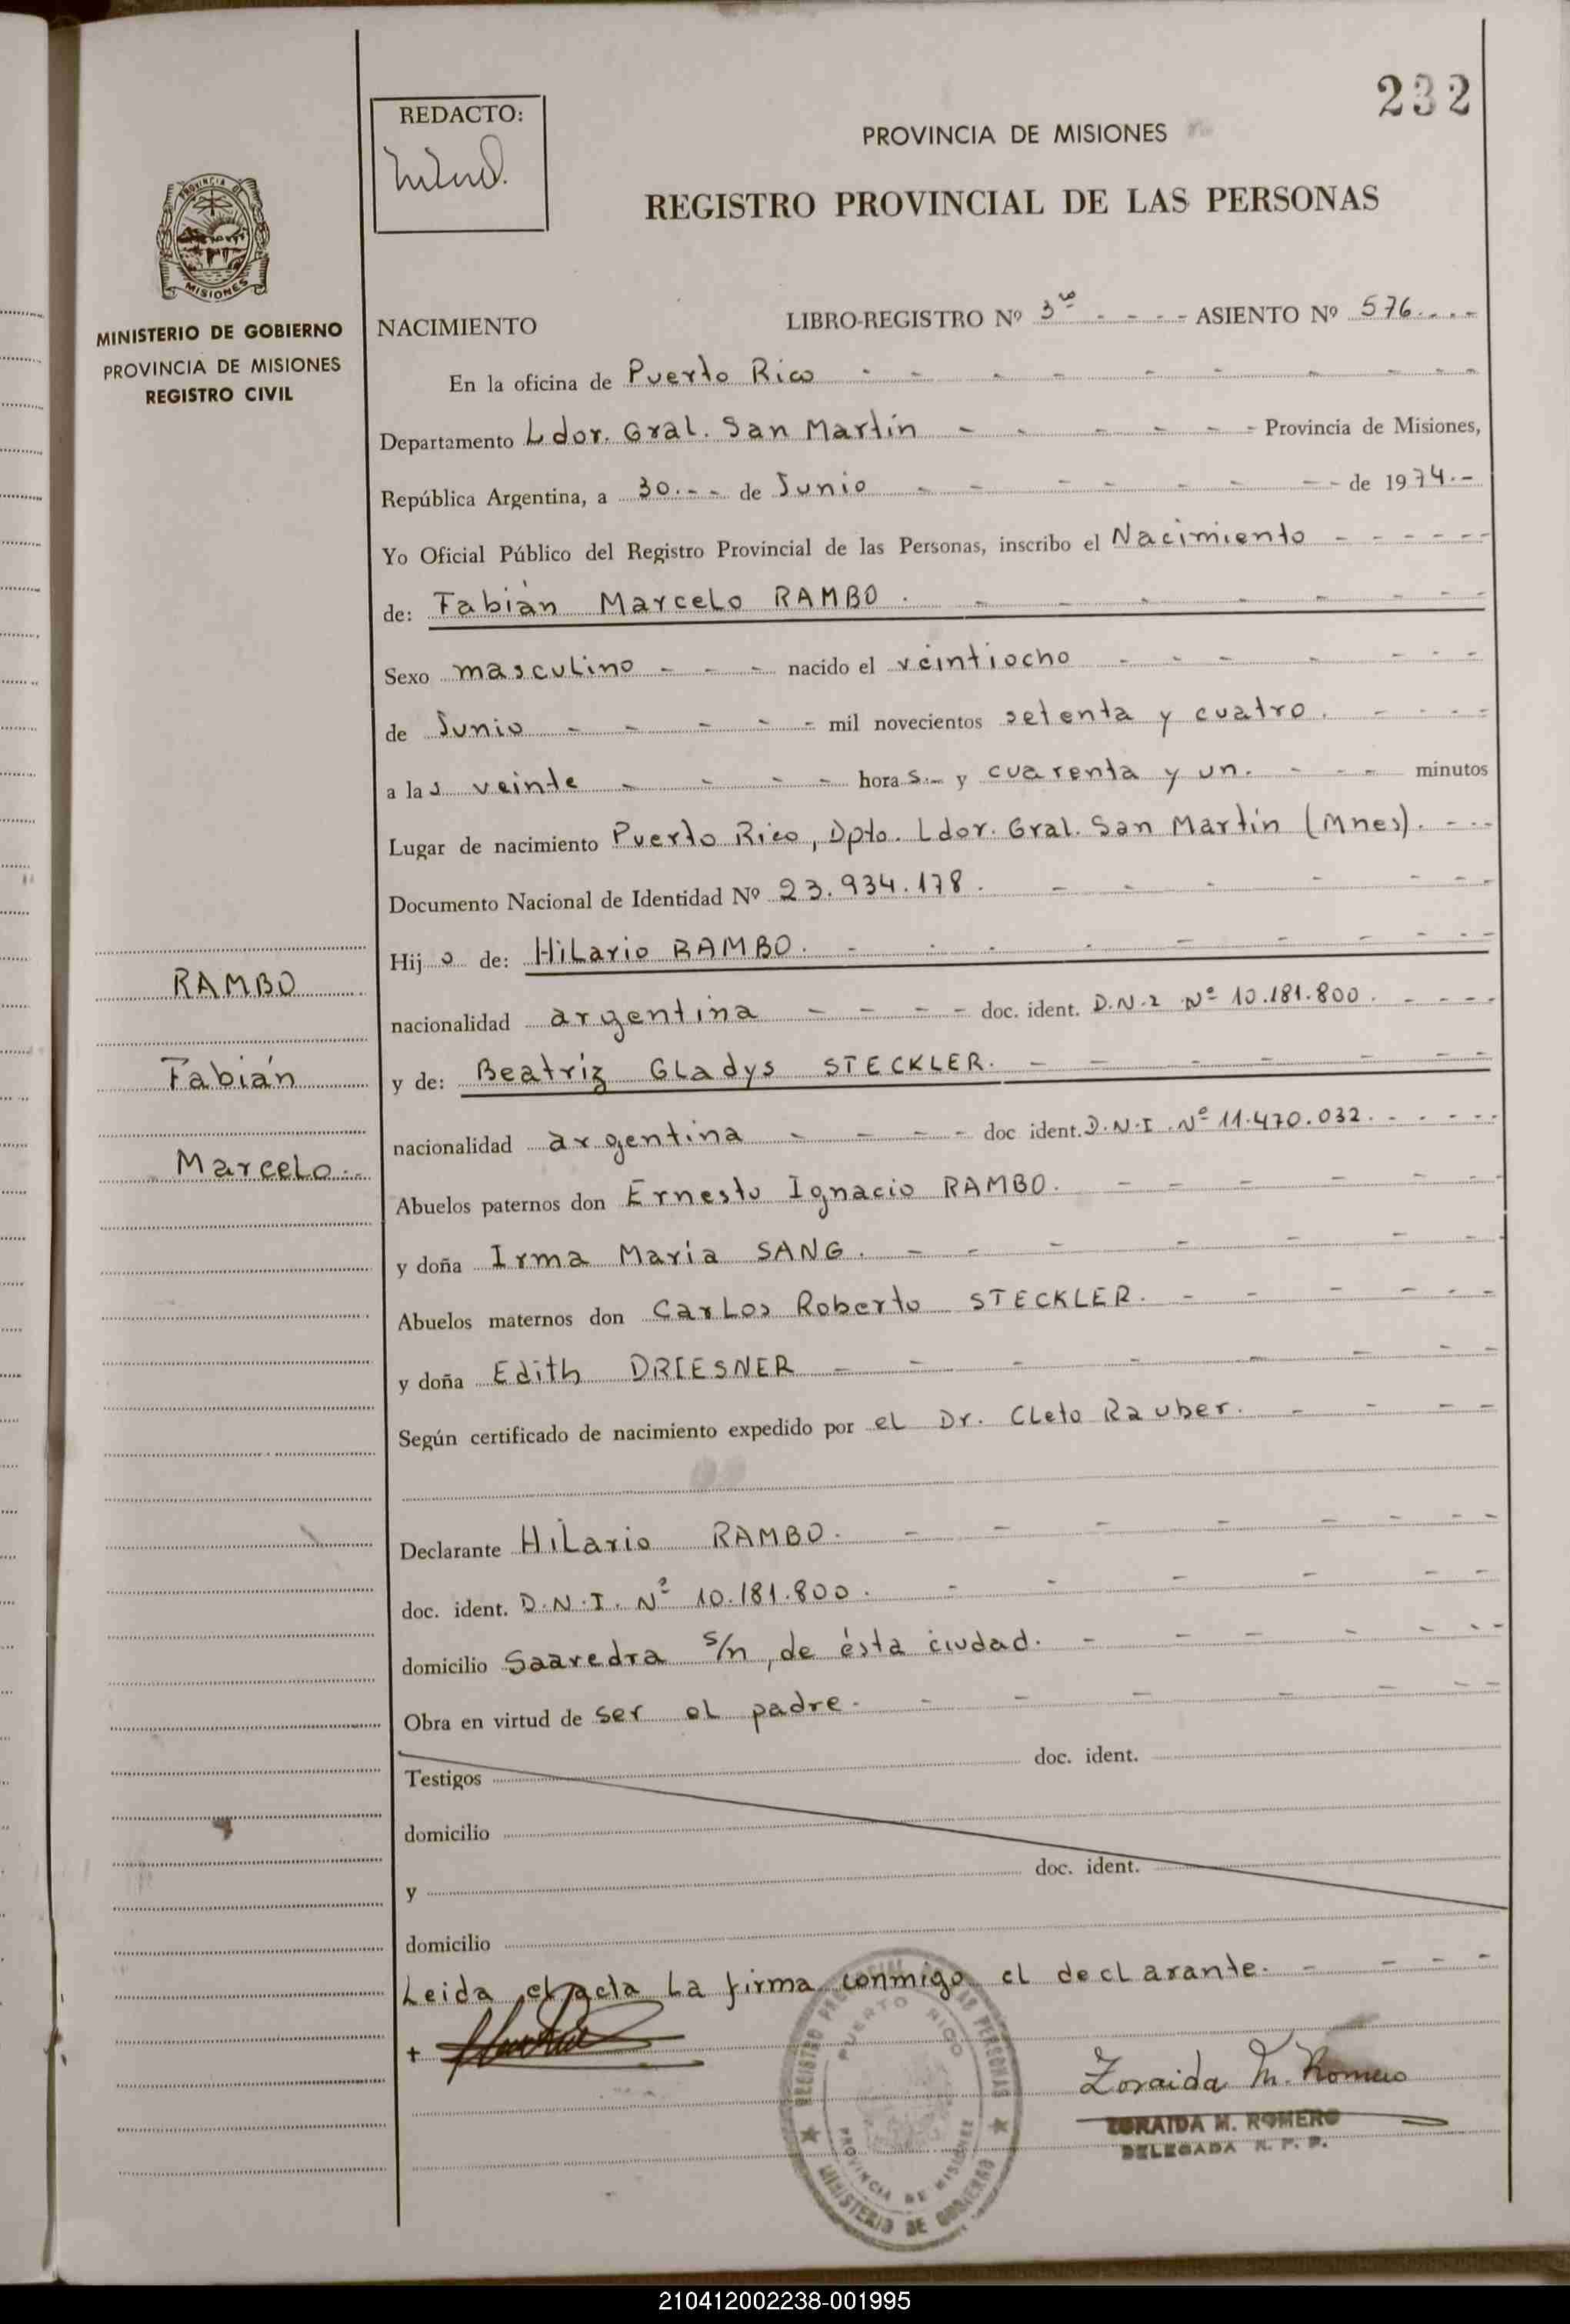 232
REDACTO:
PROVINCIA DE MISIONES
REGISTRO PROVINCIAL DE LAS PERSONAS
PROVINCIA DE
MISIONES
MINISTERIO DE GOBIERNO
PROVINCIA DE MISIONES
REGISTRO CIVIL
NACIMIENTO LIBRO-REGISTRO Nº 3º - - - - ASIENTO Nº 576 . - . -
En la oficina de Puerto Rico
Departamento Ldor. Gral. San Martín - Provincia de Misiones,
República Argentina, a 30.-- de Junio - de 1974.-
Yo Oficial Público del Registro Provincial de las Personas, inscribo el Nacimiento
de: Fabián Marcelo RAMBO.
Sexo masculino - - - nacido el veintiocho
de Junio - mil novecientos setenta y cuatro.
a las veinte - horas.- y cuarenta y un. - minutos
Lugar de nacimiento Puerto Rico, Dpto. Ldor. Gral. San Martín (Mnes). - --
Documento Nacional de Identidad Nº 23.934.178.
Hijo de: Hilario RAMBO.
RAMBO
nacionalidad argentina - - - - doc. ident. D.N.I Nº 10.181.800.
Fabián
y de: Beatriz Gladys STECKLER.
nacionalidad argentina - - - - doc ident. D.N.I. Nº 11.470.032.
Marcelo.-
Abuelos paternos don Ernesto Ignacio RAMBO.
y doña Irma María SANG.
Abuelos maternos don Carlos Roberto STECKLER.
y doña Edith DRIESNER
Según certificado de nacimiento expedido por el Dr. Cleto Rauber.
Declarante Hilario RAMBO.
doc. ident. D.N.I. Nº 10.181.800.
domicilio Saavedra s/n, de ésta ciudad.
Obra en virtud de ser el padre.
Testigos doc. ident.
domicilio
y doc. ident.
domicilio
Leida el acta la firma conmigo el declarante.
+
REGISTRO PROVINCIAL DE LAS PERSONAS
PUERTO RICO
PROVINCIA DE MISIONES
MINISTERIO DE GOBIERNO
Zoraida M. Romero
ZORAIDA M. ROMERO
DELEGADA R. P. P.
210412002238-001995